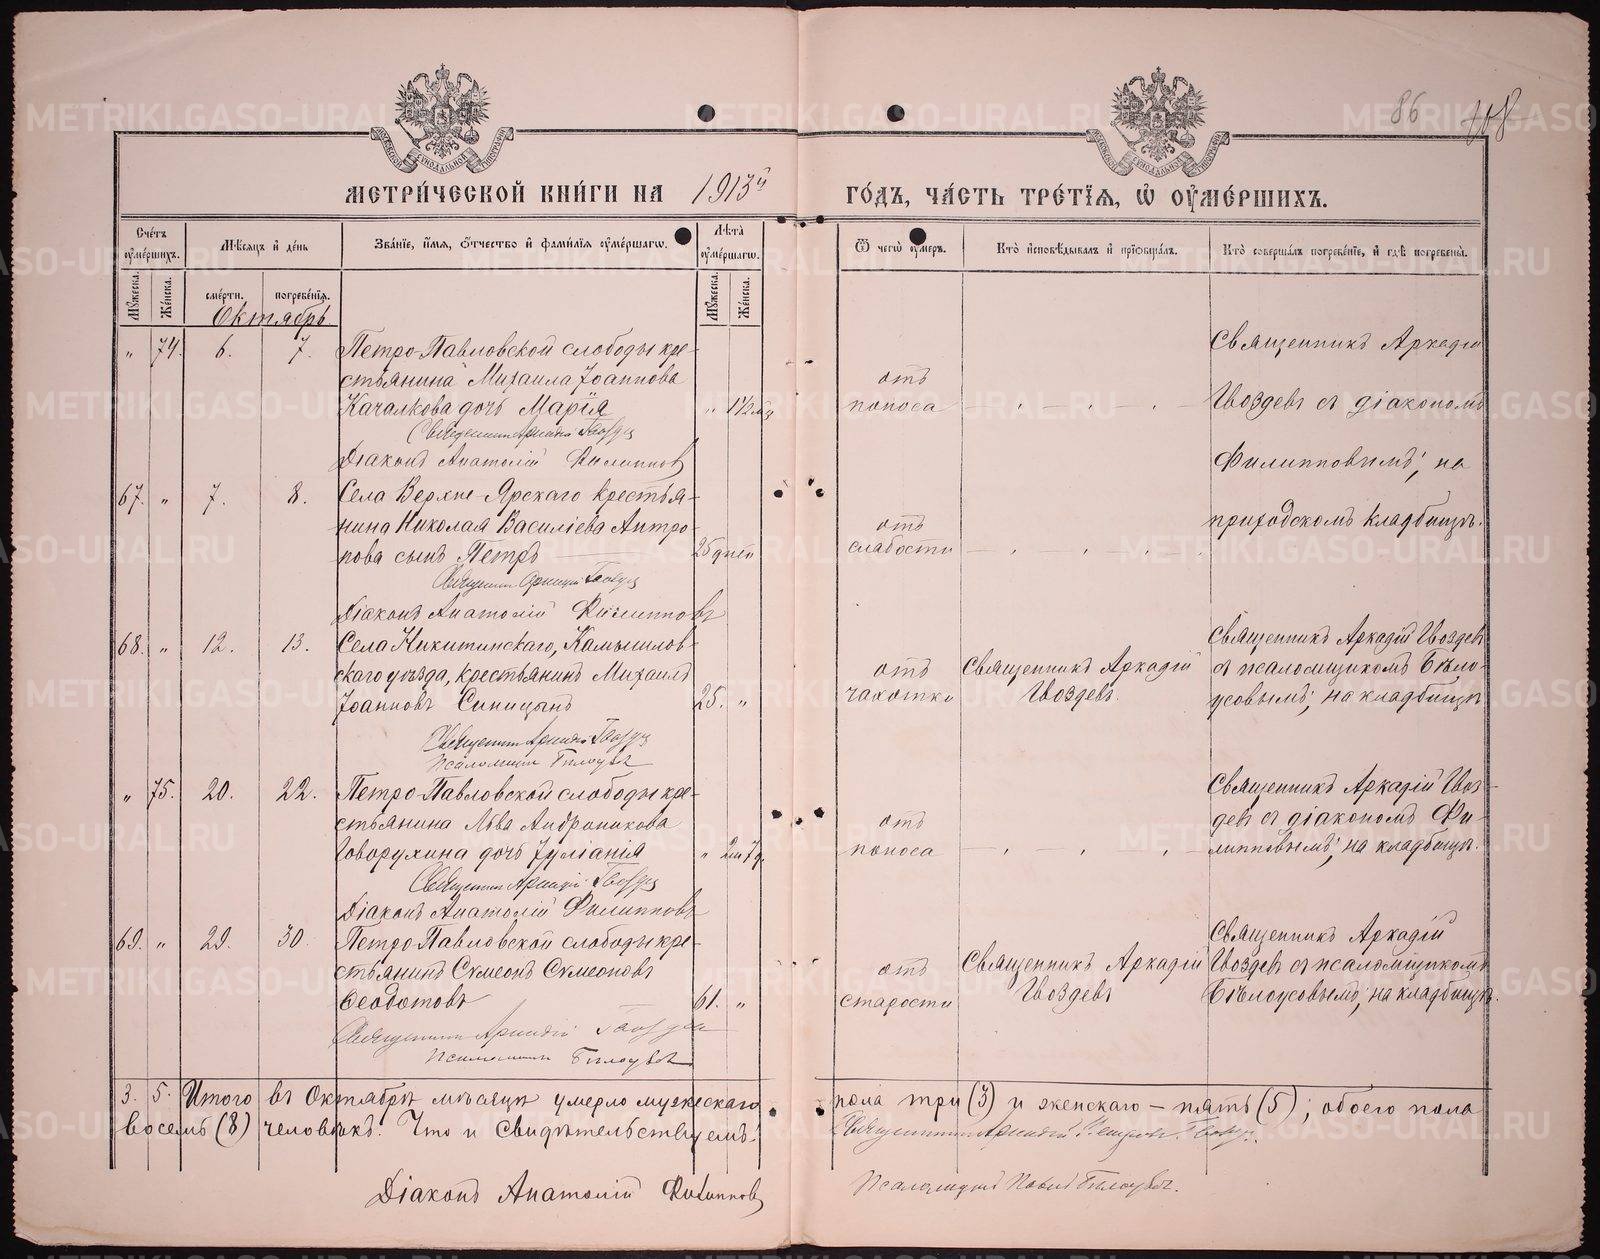 86 708
МЕТРИЧЕСКОЙ КНИГИ НА 1913й ГОДЪ, ЧАСТЬ ТРЕТІЯ, Ѡ ОУМЕРШИХЪ.
Счетъ оумершихъ.
Мужеска. Женска.
Мѣсяцъ и день
смерти. погребенія.
Званіе, имя, отчество и фамилія оумершагѡ.
Лѣта оумершагѡ.
Мужеска. Женска.
Ѿ чегѡ оумеръ.
Кто исповѣдывалъ и пріобщалъ.
Кто совершалъ погребеніе, и гдѣ погребены.
Октябрь
" 74. 6. 7. Петро-Павловской слободы кре-
стьянина Михаила Іоаннова
Качалкова дочь Марія " 1½ мц
Священникъ Аркадій Гвоздевъ
Діаконъ Анатолій Филипповъ
отъ
поноса
Священникъ Аркадій
Гвоздевъ съ діакономъ
Филипповымъ, на
приходскомъ кладбищѣ.
67. " 7. 8. Села Верхне-Ярскаго крестья-
нина Николая Василіева Антро-
пова сынъ Петръ 25 дней
Священникъ Аркадій Гвоздевъ
Діаконъ Анатолій Филипповъ
отъ
слабости
68. " 12. 13. Села Никитинскаго, Камышлов-
скаго уѣзда, крестьянинъ Михаилъ
Іоанновъ Синицынъ 25. "
Священникъ Аркадій Гвоздевъ
Псаломщикъ Бѣлоусовъ
отъ
чахотки
Священникъ Аркадій
Гвоздевъ.
Священникъ Аркадій Гвоздевъ
съ псаломщикомъ Бѣло-
усовымъ, на кладбищѣ
" 75. 20. 22. Петро-Павловской слободы кре-
стьянина Льва Андроникова
Говорухина дочь Іуліанія " 2 м 7 д.
Священникъ Аркадій Гвоздевъ
Діаконъ Анатолій Филипповъ
отъ
поноса
Священникъ Аркадій Гвоз-
девъ съ діакономъ Фи-
липповымъ, на кладбищѣ.
69. " 29. 30. Петро-Павловской слободы кре-
стьянинъ Симеонъ Симеоновъ
Ѳеодотовъ 61. "
Священникъ Аркадій Гвоздевъ
Псаломщикъ Бѣлоусовъ
отъ
старости
Священникъ Аркадій
Гвоздевъ
Священникъ Аркадій
Гвоздевъ съ псаломщикомъ
Бѣлоусовымъ, на кладбищѣ.
3. 5. Итого въ Октябрѣ мѣсяцѣ умерло мужескаго пола три (3) и женскаго – пять (5); обоего пола
восемь (8) человѣкъ. Что и свидѣтельствуемъ:
Священникъ Аркадій Гвоздевъ.
Діаконъ Анатолій Филипповъ
Псаломщикъ Павелъ Бѣлоусовъ.
METRIKI.GASO-URAL.RU